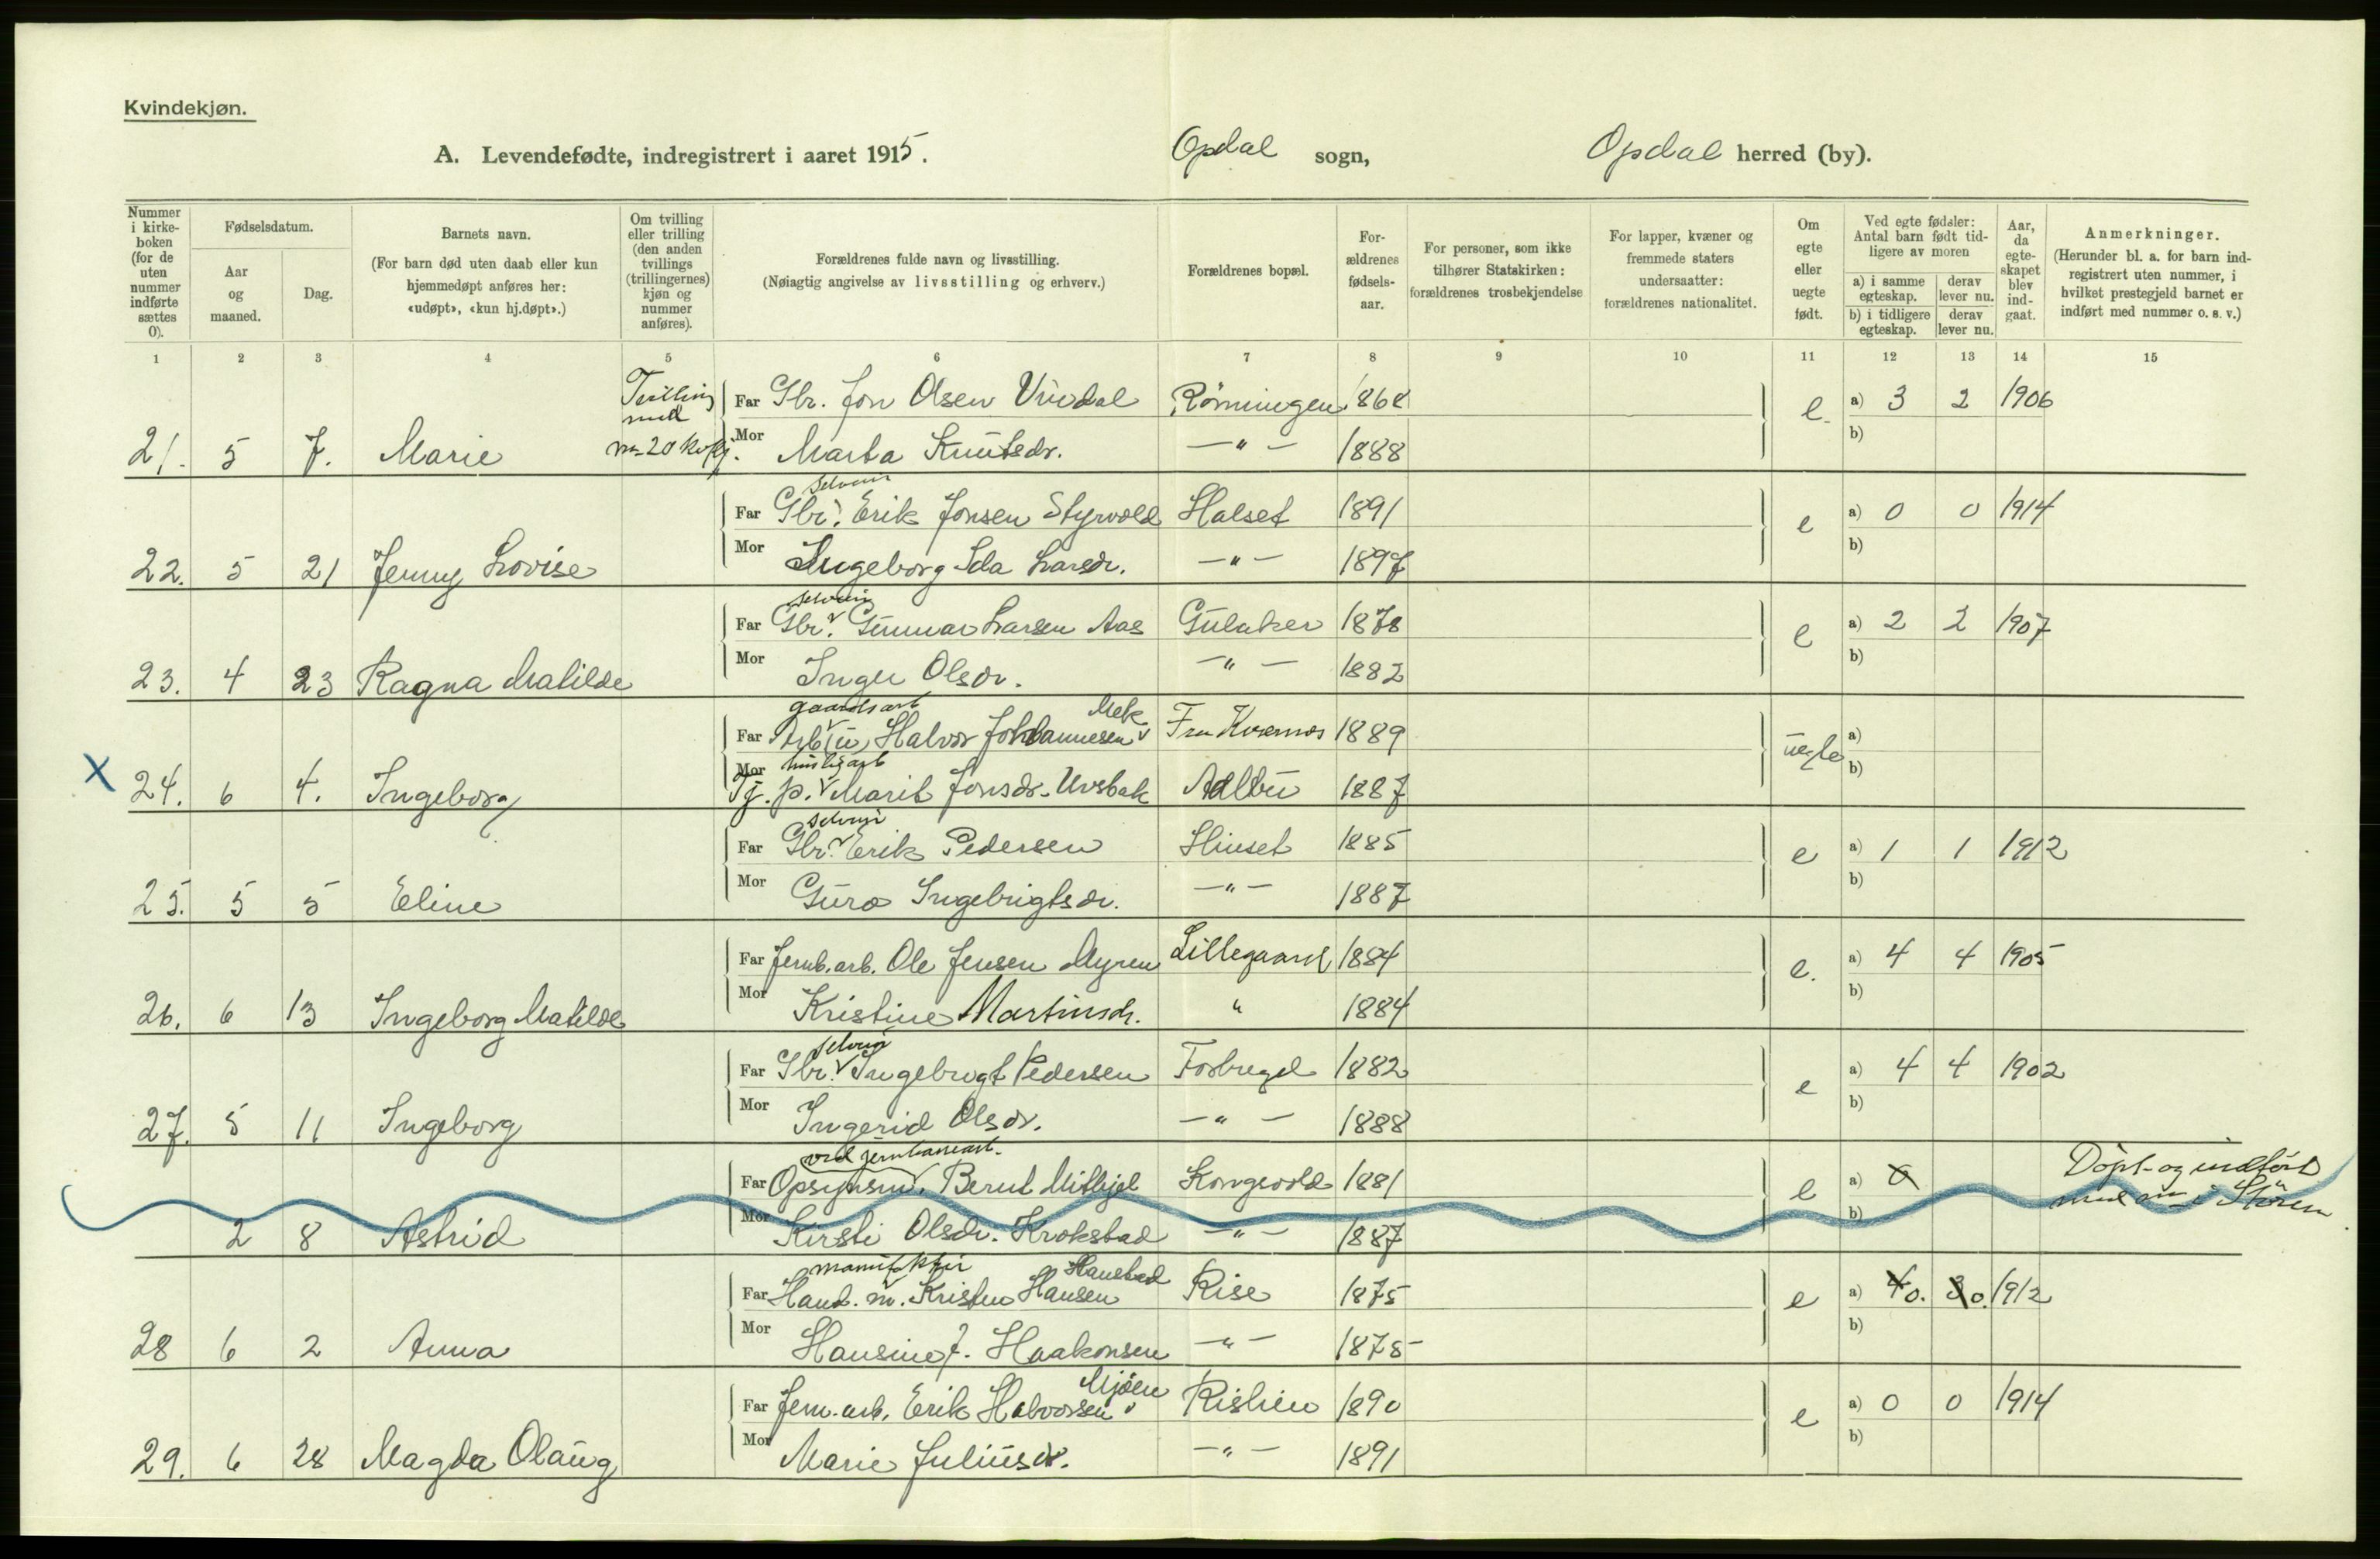 Kvindekjøn.
A. Levendefødte, indregistrert i aaret 1915. Opdal sogn, Opdal herred (by).
Nummer i kirkeboken (for de uten nummer indførte sættes 0).
Fødselsdatum.
Aar og maaned.
Dag.
Barnets navn.
(For barn død uten daab eller kun hjemmedøpt anføres her: «udøpt», «kun hj.døpt».)
Om tvilling eller trilling (den anden tvillings (trillingernes) kjøn og nummer anføres).
Forældrenes fulde navn og livsstilling.
(Nøiagtig angivelse av livsstilling og erhverv.)
Forældrenes bopæl.
Forældrenes fødselsaar.
For personer, som ikke tilhører Statskirken: forældrenes trosbekjendelse
For lapper, kvæner og fremmede staters undersaatter: forældrenes nationalitet.
Om egte eller uegte født.
Ved egte fødsler: Antal barn født tidligere av moren
a) i samme egteskap. derav lever nu.
b) i tidligere egteskap. derav lever nu.
Aar, da egteskapet blev indgaat.
Anmerkninger.
(Herunder bl. a. for barn indregistrert uten nummer, i hvilket prestegjeld barnet er indført med nummer o. s. v.)
1 2 3 4 5 6 7 8 9 10 11 12 13 14 15
Tvilling
med
Far Gbr. Jon Olsen Vindal Rønningen 1868 e. a) 3 2 1906
21. 5 7. Marie nr 20 kvkj. Mor Marta Knutsdr. —"— 1888 b)
selveier
Far Gbr. Erik Jonsen Styrvold Halset 1891 e a) 0 0 1914
22. 5 21 Jenny Lovise Mor Ingeborg Ida Larsdr. —"— 1897 b)
selveier
Far Gbr. Gunnar Larsen Aas Gulaker 1878 e a) 2 2 1907
23. 4 23 Ragna Matilde Mor Inger Olsdr. —"— 1882 b)
gaardsarb
Far Arb (u) Halvor Johannesen Fra Kvernes 1889 uegte a)
husligarb
X 24. 6 4. Ingeborg Mor Tj. p. Marit Jonsdr. Uvsbak Adlbu 1887 b)
selveier
Far Gbr. Erik Pedersen Hinset 1885 e a) 1 1 1912
25. 5 5 Eline Mor Guro Ingebrigtsdr. —"— 1887 b)
Far Jernb. arb. Ole Jensen Myren Lillegaard 1884 e. a) 4 4 1905
26. 6 13 Ingeborg Matilde Mor Kristine Martinsdr. " 1884 b)
selveier
Far Gbr. Ingebrigt Pedersen Fosbregd 1882 e a) 4 4 1902
27. 5 11 Ingeborg Mor Ingerid Olsdr. —"— 1888 b)
ved jernbanearb.
Far Opsynsm. Bernt Mithjel Kongsvold 1881 e a) 0 Döpt og indført
2 8 Astrid Mor Kirsti Olsdr. Krokstad —"— 1887 b) med nr i Støren
manufaktur Hanstad
Far Hand. m. Kristen Hansen Rise 1875 e a) 4 0. 3 0. 1912
28 6 2 Anna Mor Hansine J. Haakonsen —"— 1878 b)
Mjöen
Far Jern. arb. Erik Halvorsen Rishien 1890 e a) 0 0 1914
29. 6 28 Magda Olaug Mor Marie Juliusdr. —"— 1891 b)